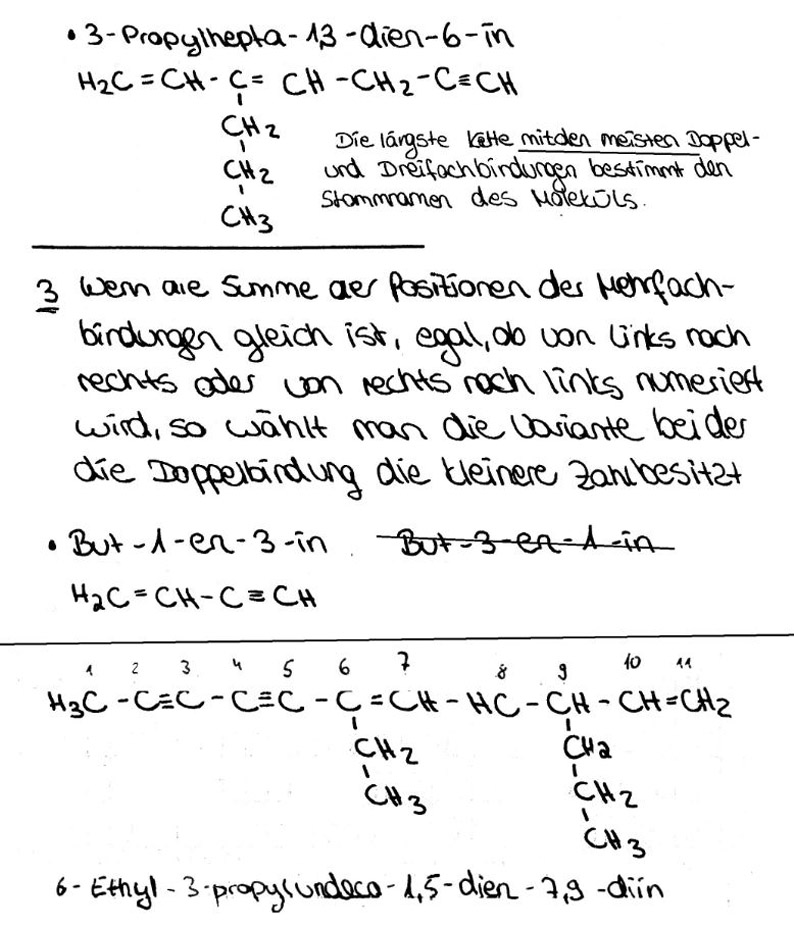 • 3-Propylhepta-1,3-dien-6-in
H₂C=CH-C=CH-CH₂-C≡CH
CH₂
CH₂
CH₃
Die längste Kette mit den meisten Doppel-
und Dreifachbindungen bestimmt den
Stammnamen des Moleküls.
3 Wenn die Summe der Positionen der Mehrfach-
bindungen gleich ist, egal, ob von links nach
rechts oder von rechts nach links numeriert
wird, so wählt man die Variante bei der
die Doppelbindung die kleinere Zahl besitzt
• But-1-en-3-in But-3-en-1-in
H₂C=CH-C≡CH
1 2 3 4 5 6 7 8 9 10 11
H₃C-C≡C-C≡C-C=CH-HC-CH-CH=CH₂
CH₂ CH₂
CH₃ CH₂
CH₃
6-Ethyl-3-propylundeca-1,5-dien-7,9-diin